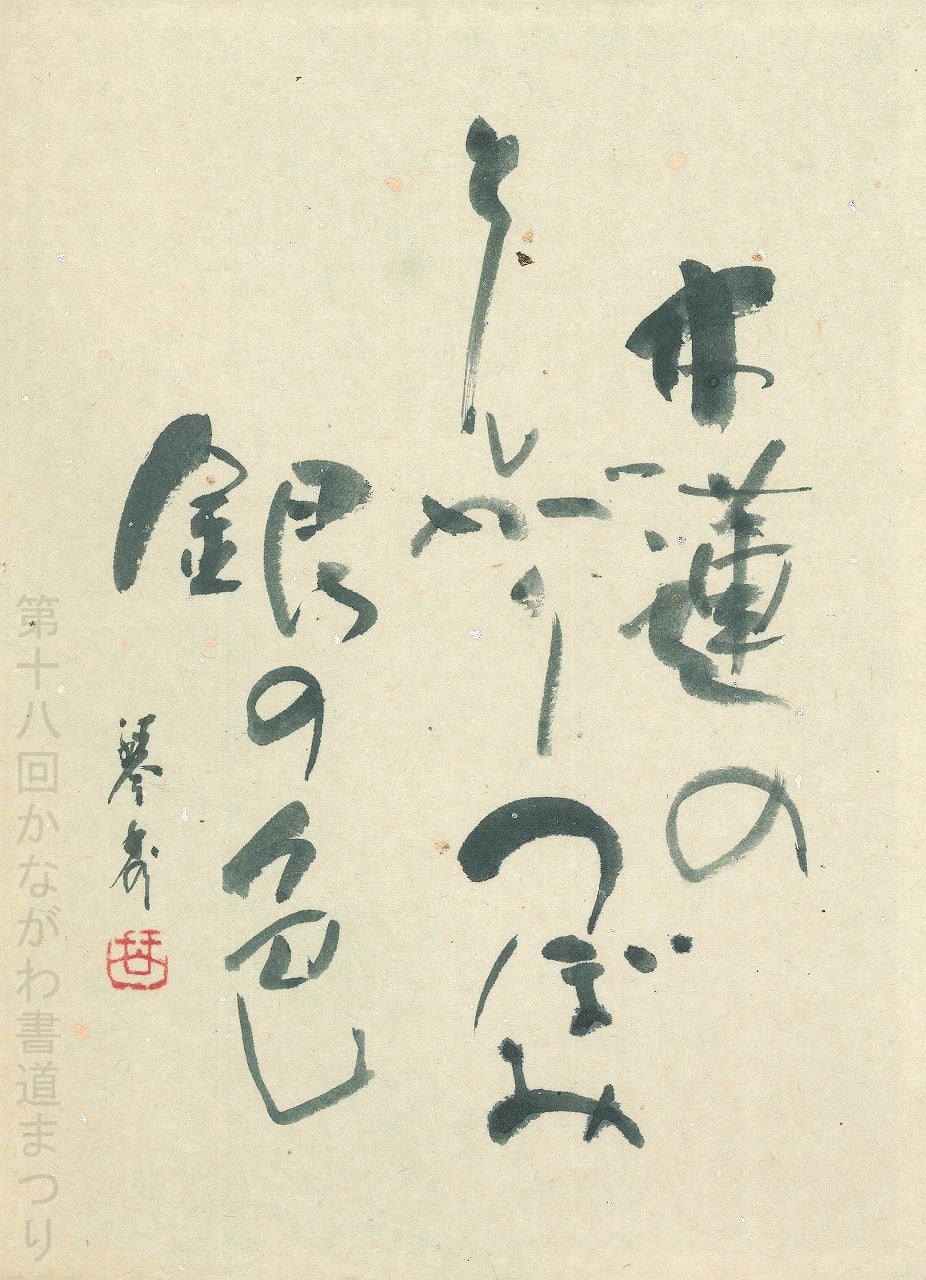 木蓮の
とんがりつぼみ
銀の色
第十八回かながわ書道まつり